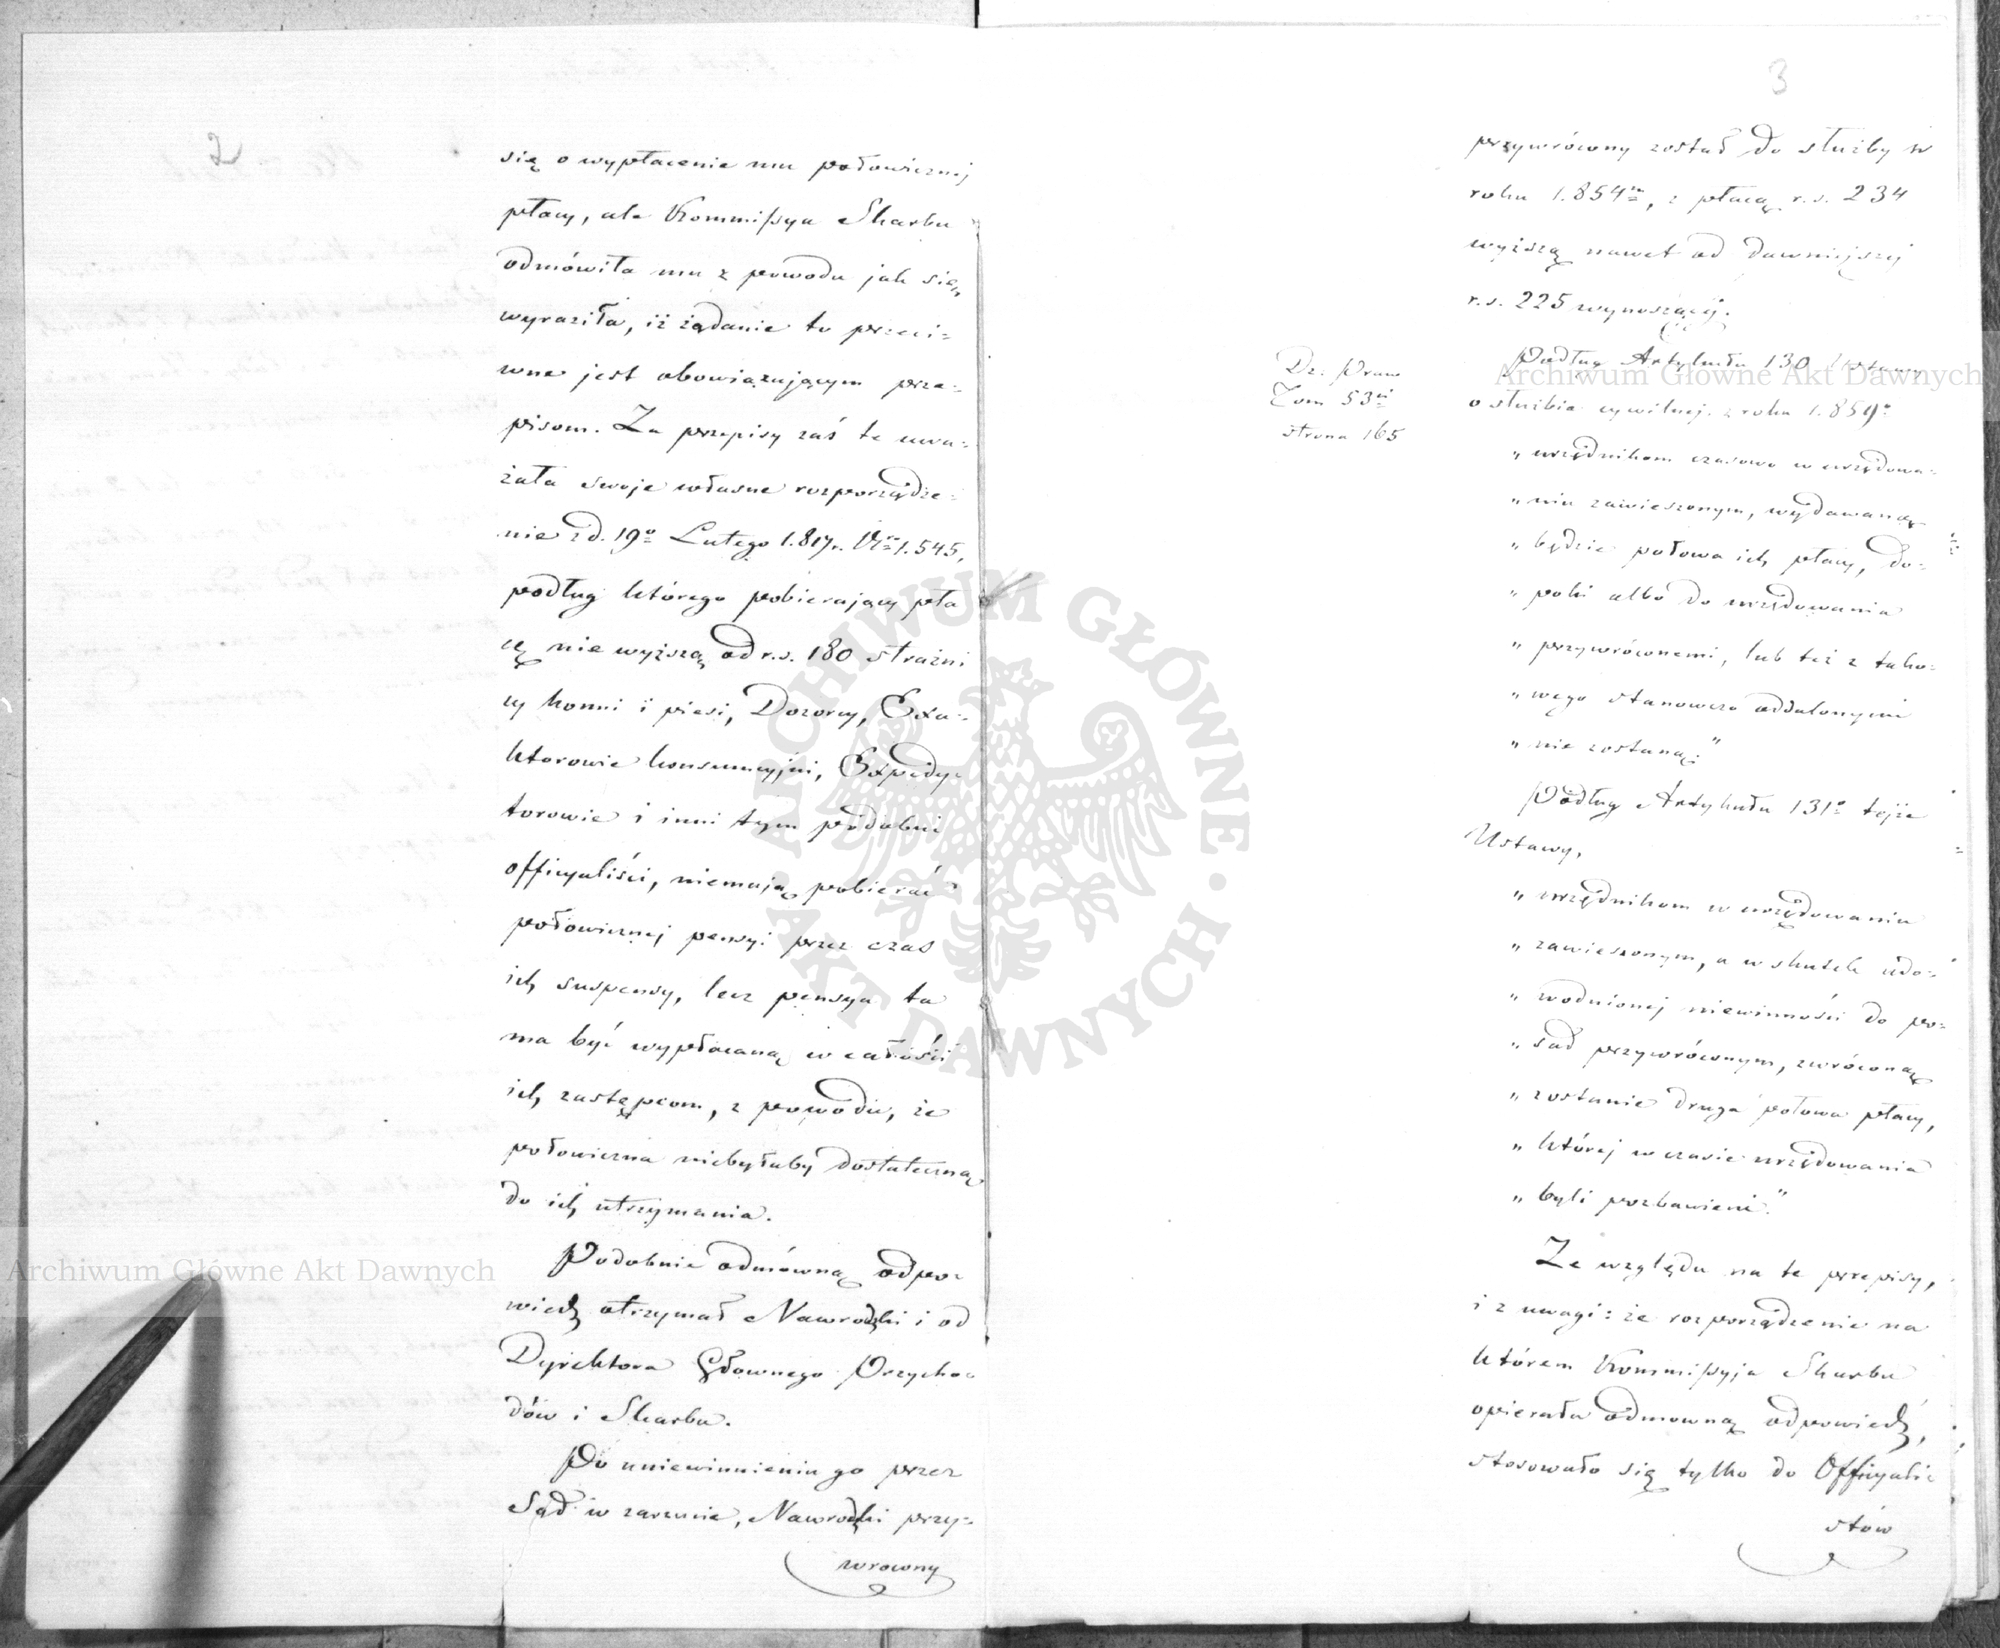 2
się o wypłacenie mu połowicznej
płacy, ale Kommissya Skarbu
odmówiła mu z powodu jak się,
wyraziła, iż żądanie to przeci=
wne jest obowiązującym prze=
pisom. Za przepisy zaś te uwa=
żała swoje własne rozporządze=
nie z d. 19º Lutego 1.817r. Nr 1.545,
podług którego pobierający pła
cę nie wyższą od r.s. 180 strażni
cy konni i piesi, Dozorcy, Exa=
ktorowie konsumcyjni, Expedy=
torowie i inni tym podobni
officyaliści, niemają pobierać
połowicznej pensyi przez czas
ich suspensy, lecz pensya ta
ma być wypłacaną w całości
ich zastępcom, z powodu, że
połowiczna niebyłaby dostateczną
do ich utrzymania.
Podobnie odmówną odpo=
wiedź otrzymał Nawrocki i od
Dyrektora Głownego Przycho=
dów i Skarbu.
Po uniewinnieniu go przez
Sąd w zarzucie, Nawrocki przy=
wrowny
3
przywrócony został do służby w
roku 1.854m, z płacą r.s. 234
wyższą nawet od dawniejszej
r.s. 225 wynoszącej.
Dz: Praw
Tom 53ci
strona 165
Podług Artykułu 130 Ustawy
o służbie cywilnej z roku 1.859º
„ urzędnikom czasowo w urzędowa=
„ niu zawieszonym, wydawaną
„ będzie połowa ich płacy, do=
„ póki albo do urzędowania
„ przywróconemi, lub też z tako=
„ wego stanowczo oddalonymi
„ nie zostaną."
Podług Artykułu 131º tejże
Ustawy,
„ urzędnikom w urzędowaniu
„ zawieszonym, a w skutek udo=
„ wodnionej niewinności do po=
„ sad przywróconym, zwróconą
„ zostanie druga połowa płacy,
„ której w czasie urzędowania
„ byli pozbawieni."
Ze względu na te przepisy,
i z uwagi: że rozporządzenie na
którem Kommissyja Skarbu
opierała odmowną odpowiedź,
stosowało się tylko do Officyali
stów
Archiwum Główne Akt Dawnych
Archiwum Główne Akt Dawnych
ARCHIWUM GŁÓWNE · AKT DAWNYCH ·